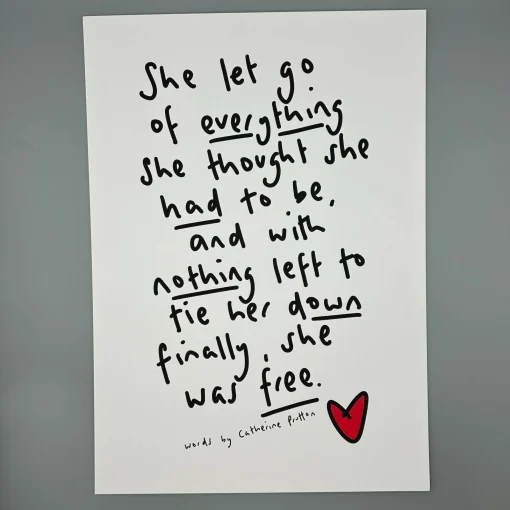 She let go
of everything
she thought she
had to be,
and with
nothing left to
tie her down
finally, she
was free.
words by Catherine Prutton